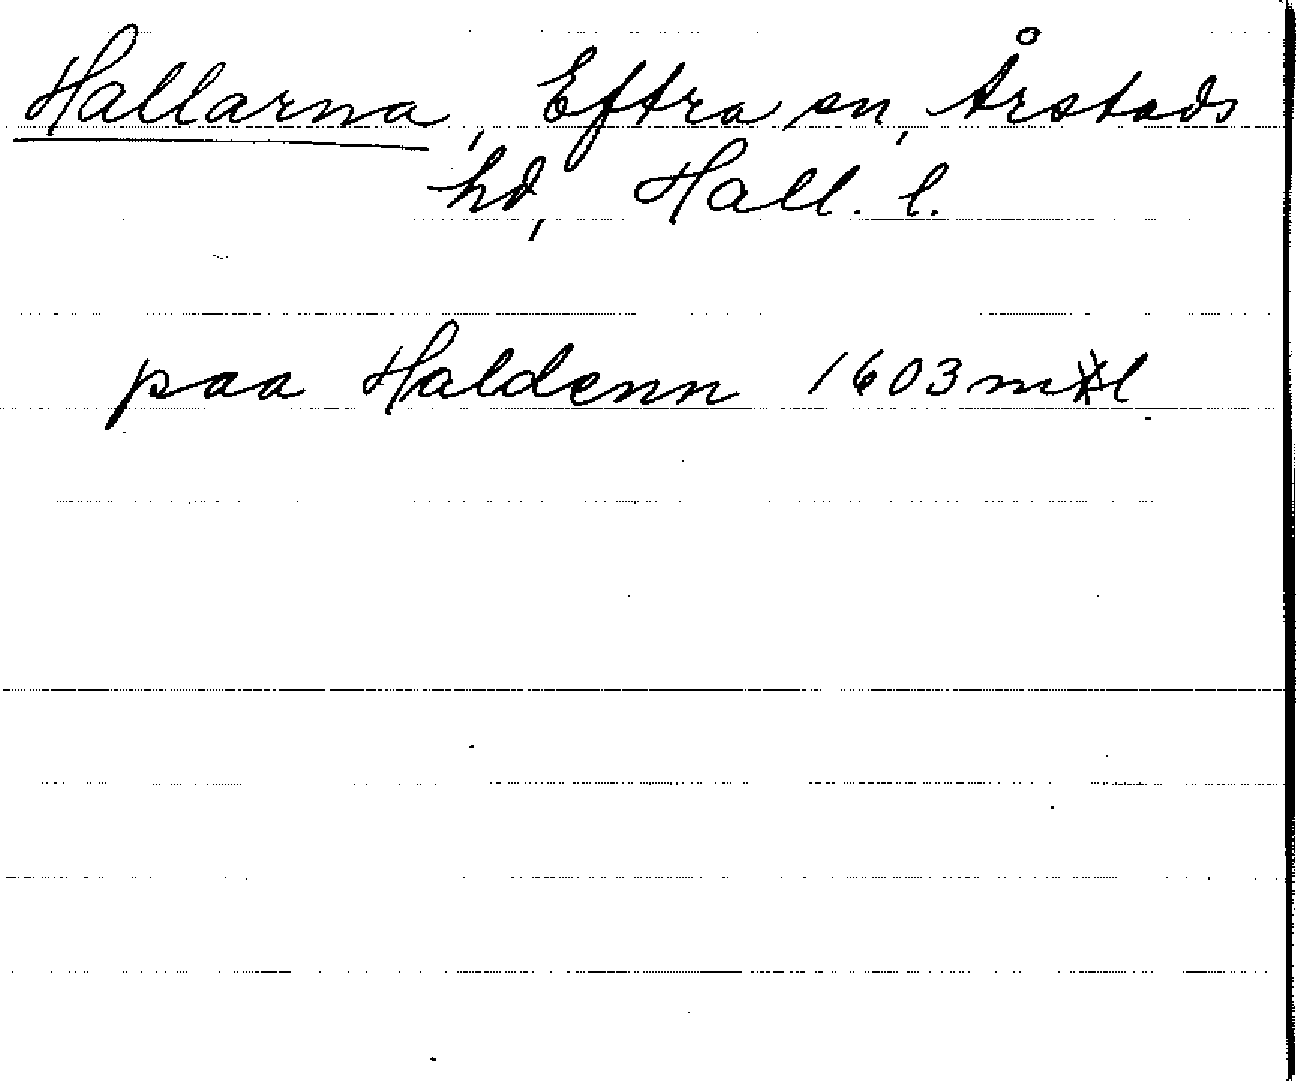 Hallarna, Eftra sn, Årstads
hd, Hall. l.
paa Haldenn 1603